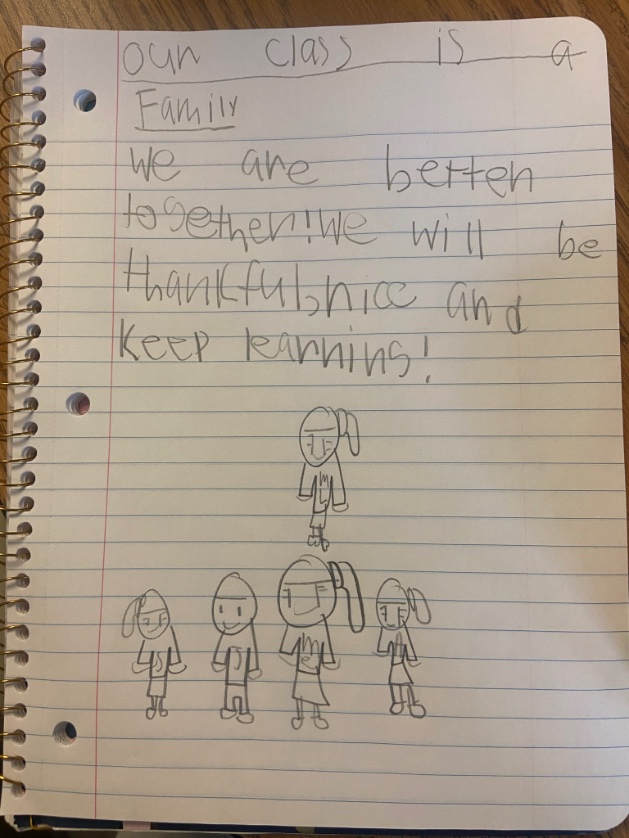 Our class is a
Family
We are better
together! We will be
thankful, nice and
Keep learning!